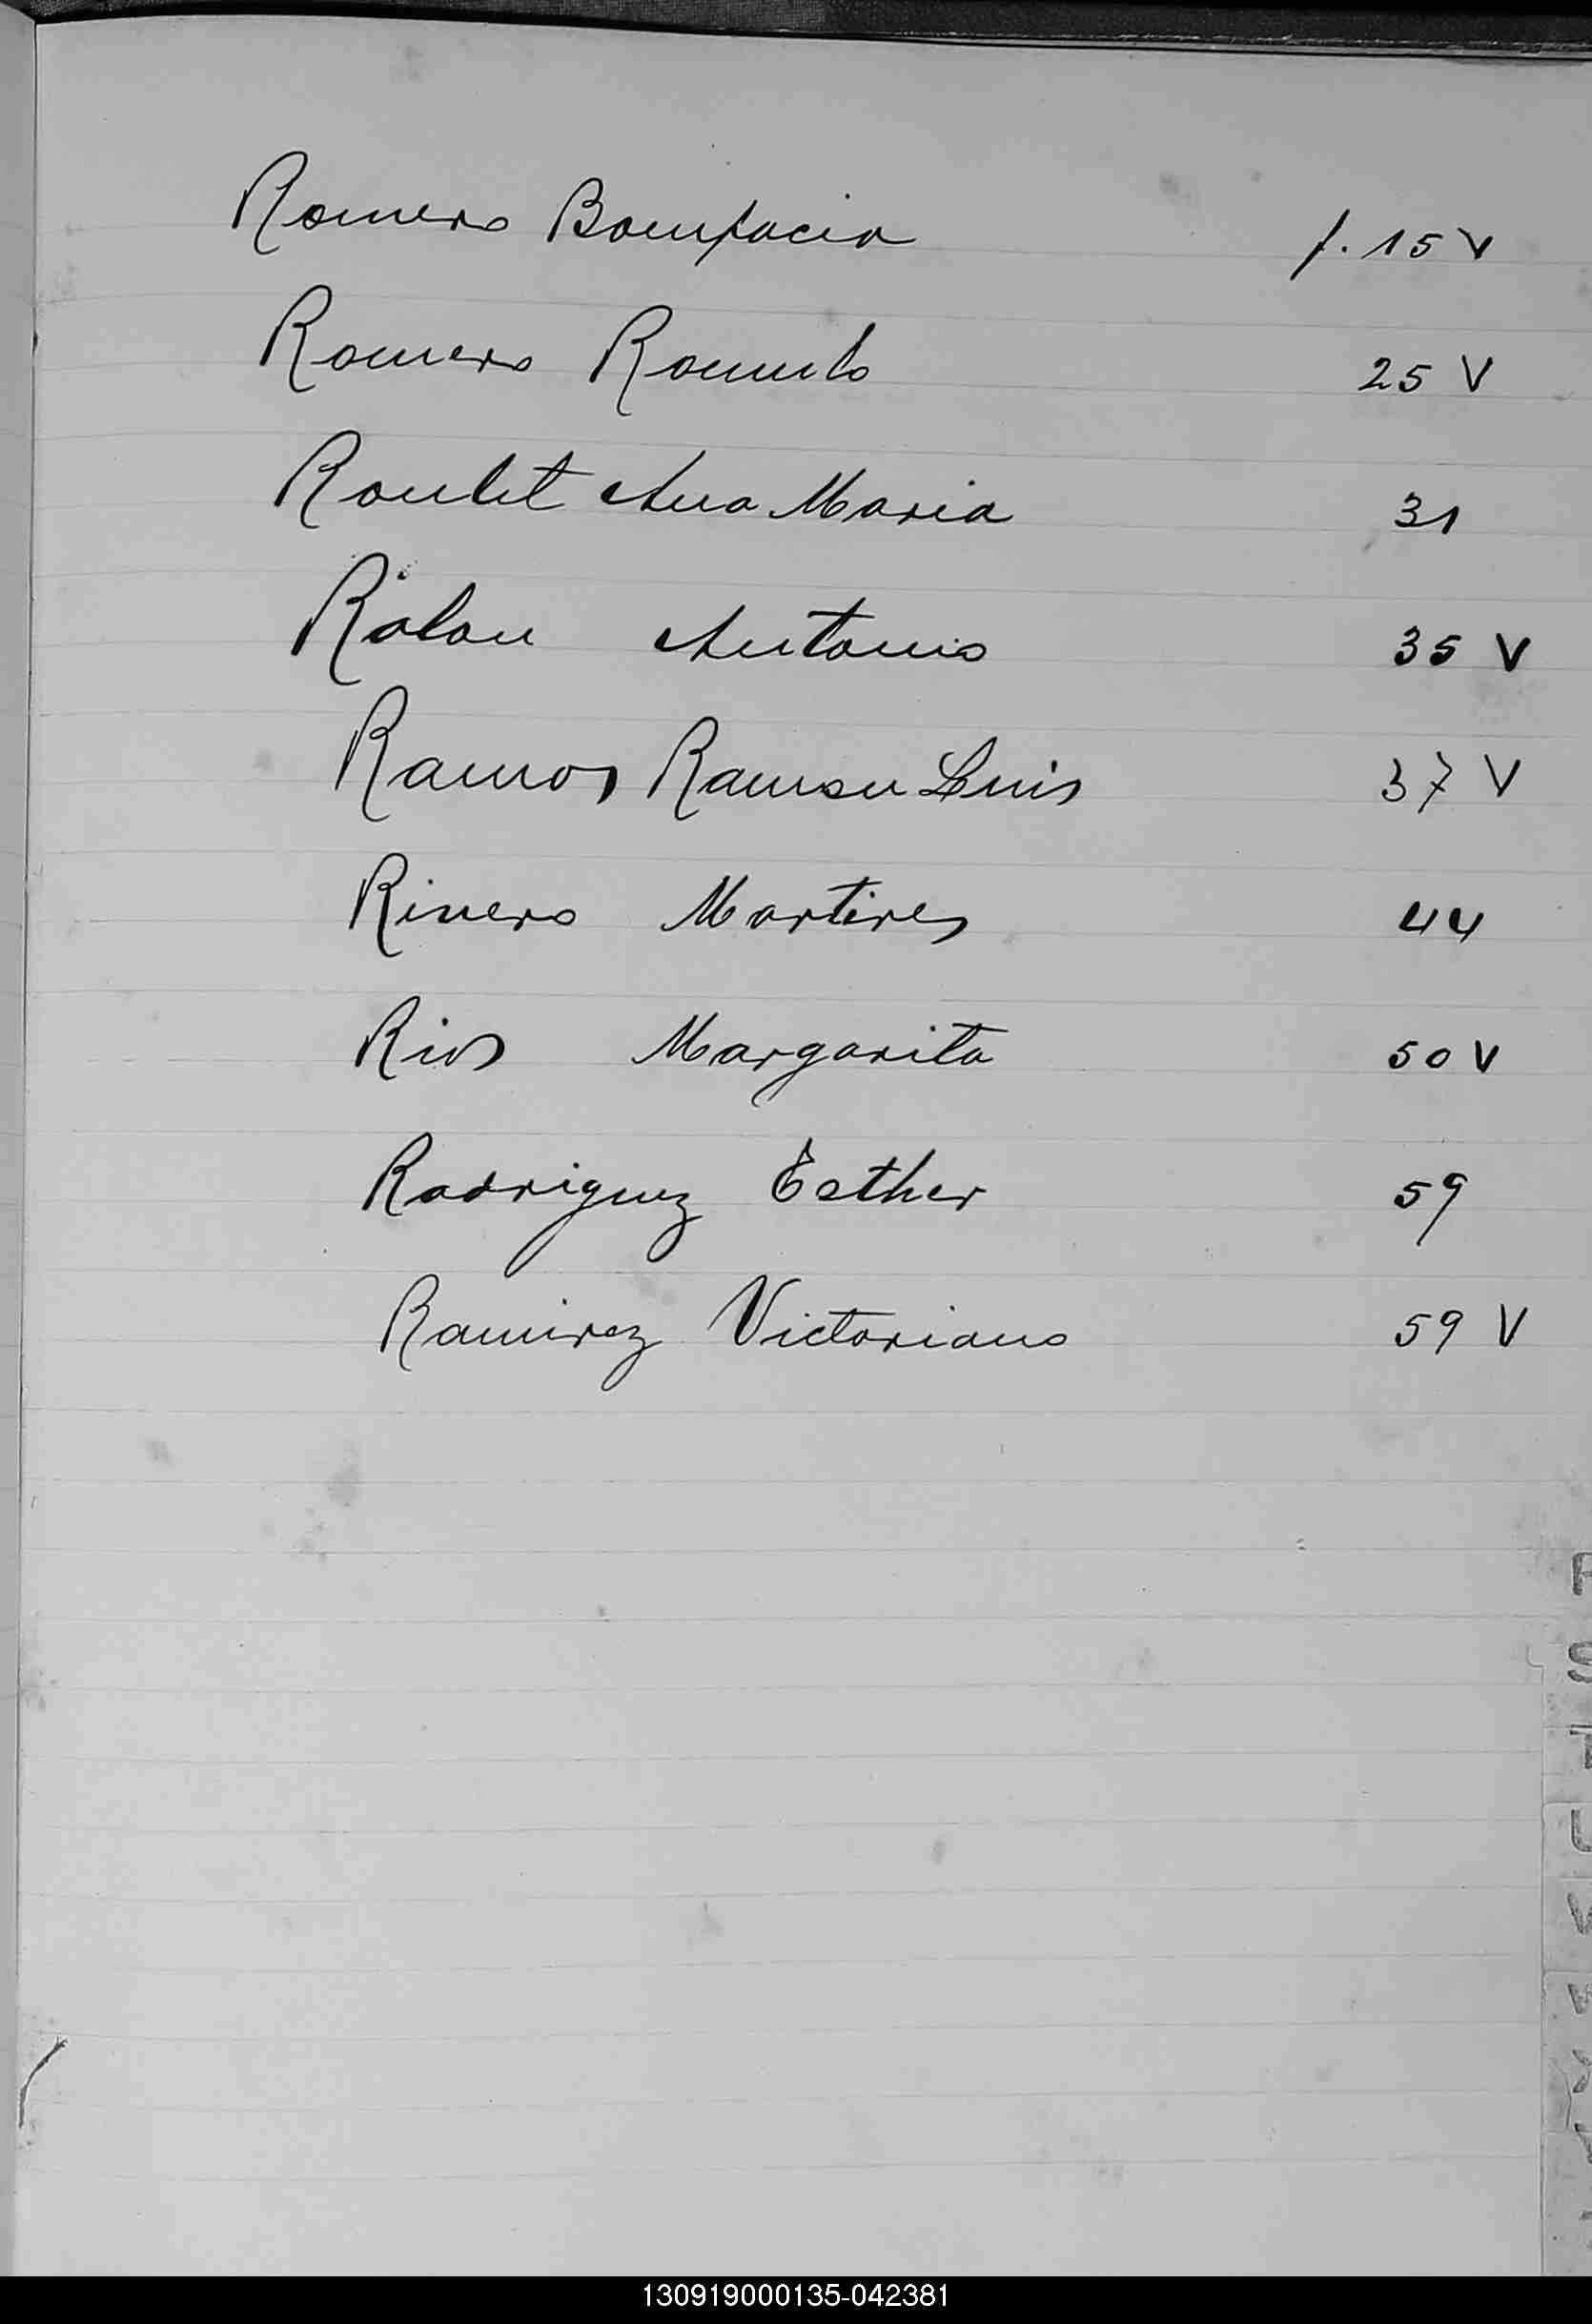 Romero Bonifacia f. 15 V
Romero Romulo 25 V
Roulet Ana Maria 31
Rolon Antonio 35 V
Ramos Ramon Luis 37 V
Rivero Martires 44
Rios Margarita 50 V
Rodriguez Esther 59
Ramirez Victoriano 59 V
R
S
T
U
V
W
X
Y
130919000135-042381